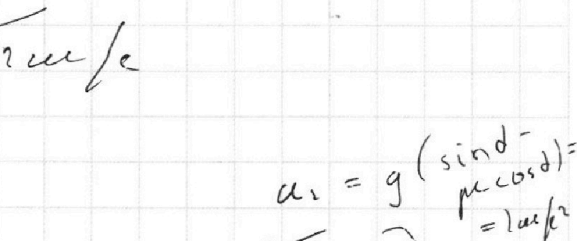 2 м/с
a₂ = g(sinα -
μcosα) =
= 2 м/с²